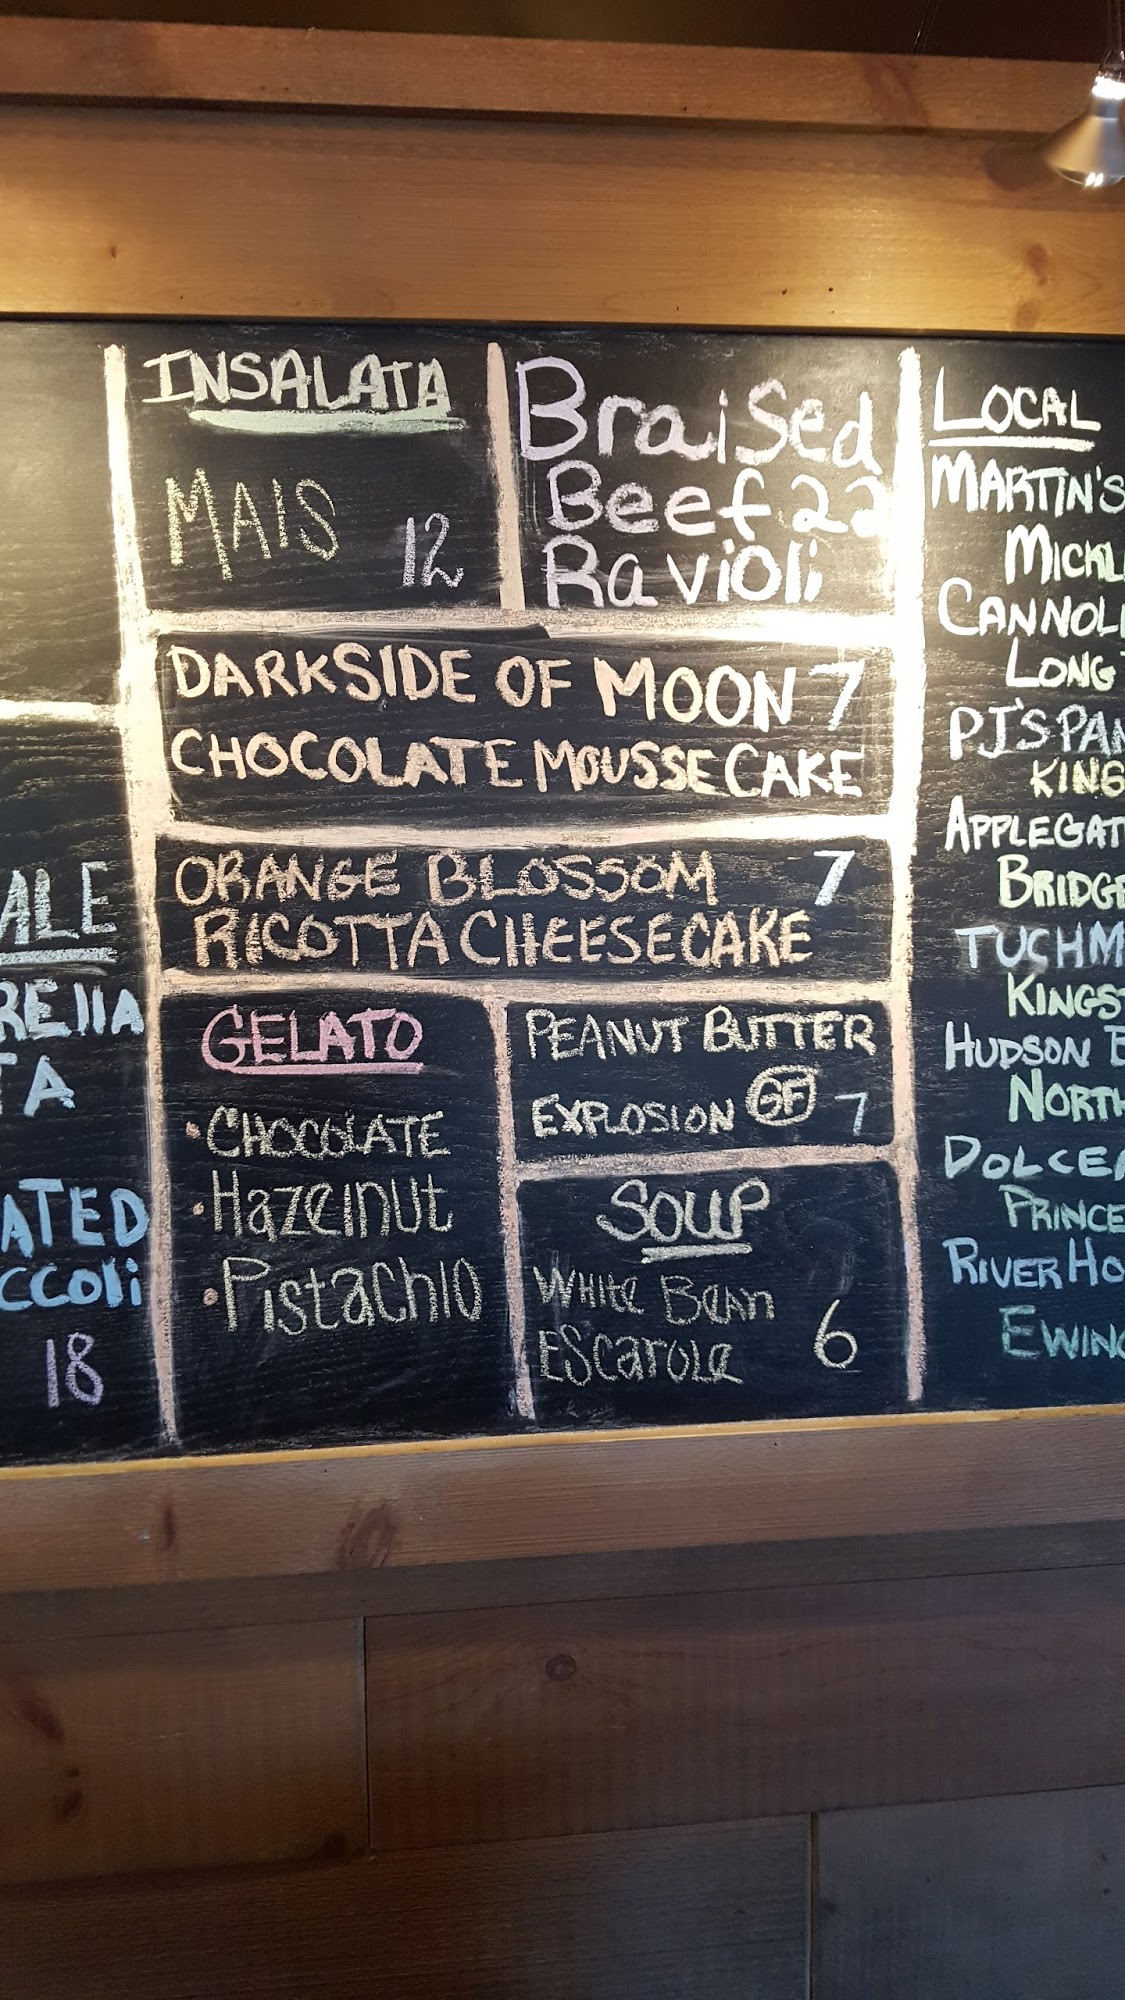 INSALATA
MAIS
12
Braised
Beef 22
Ravioli
DARKSIDE OF MOON 7
CHOCOLATE MOUSSE CAKE
ORANGE BLOSSOM 7
RICOTTA CHEESECAKE
GELATO
• CHOCOLATE
• Hazelnut
• Pistachio
PEANUT BUTTER
EXPLOSION GF 7
SOUP
White Bean
Escarole 6
ALE
REllA
TA
ATED
ccoli
18
LOCAL
MARTIN'S
MICKL
CANNOLI
LONG
PJ'S PAN
KING
APPLEGAT
BRIDGE
TUCHM
KINGS
HUDSON
NORTH
DOLCE
PRINCE
RIVER HO
EWING